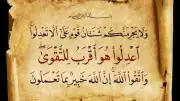 وَلَا يَجْرِمَنَّكُمْ شَنَآنُ قَوْمٍ عَلَىٰ أَلَّا تَعْدِلُوا
اعْدِلُوا هُوَ أَقْرَبُ لِلتَّقْوَىٰ
وَاتَّقُوا اللَّهَ إِنَّ اللَّهَ خَبِيرٌ بِمَا تَعْمَلُونَ